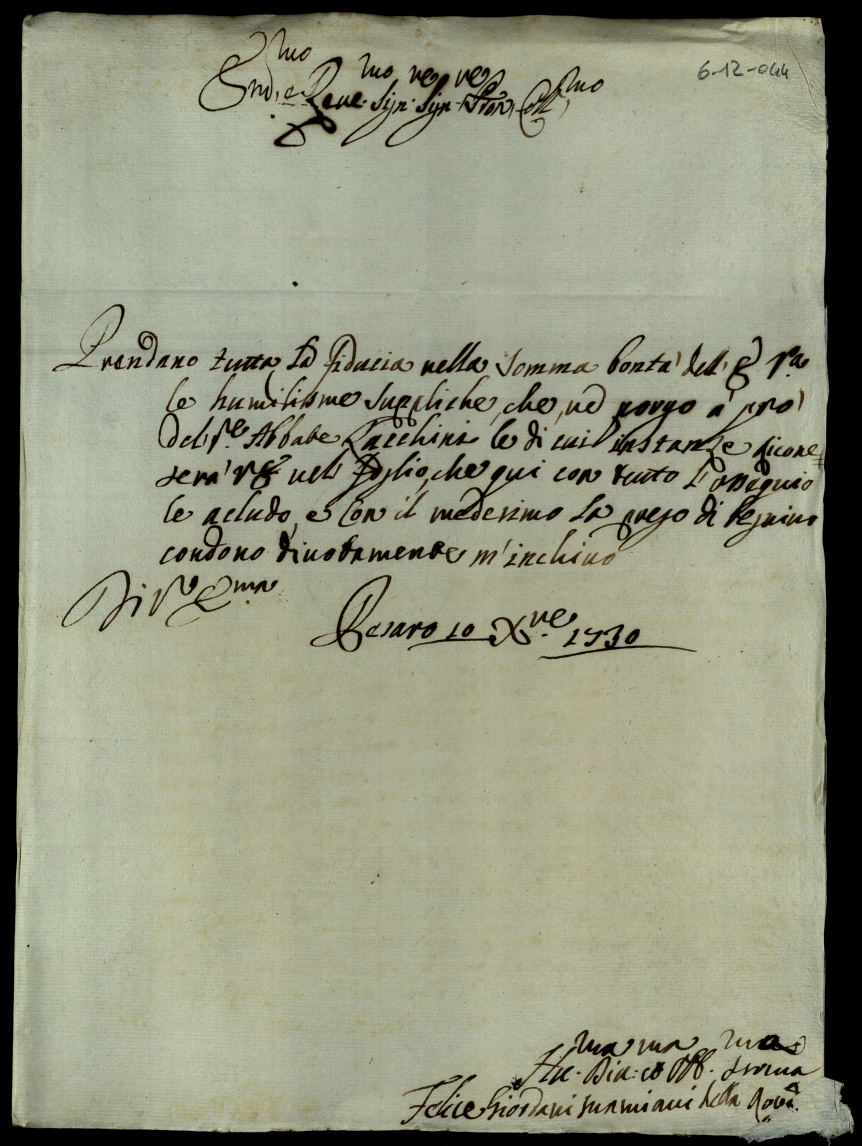 6-12-044
Em.mo e Reve.mo Sig.re Sig.re Pron. Coll.mo
Prendano tutta la fiducia nella somma bontà dell' E. V.ra
le humilissme suppliche, che, ne porgo a' pro'
del S.re Abbate Zacchini le di cui instanze ricone=
serà V. E. nel foglio, che qui con tutto l'ossequio
le acludo, e con il medesimo la prego di benigno
condono divotamente m'inchino
Di V. E.ma
Pesaro 10 X.re 1730
Hu.ma Di.ma et Obb.ma Serva
Felice Giordani Mamiani della Rove.